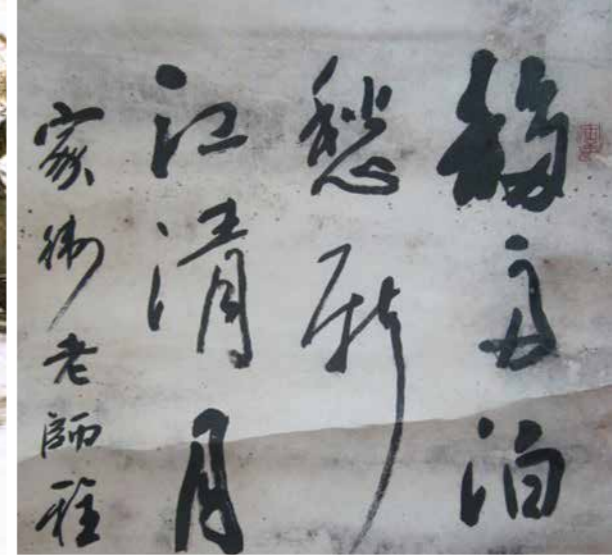 移舟泊
愁新
江清月
老師雅